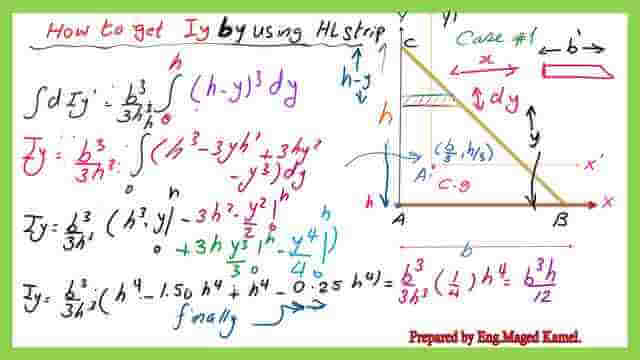 How to get Iy by using HL strip
∫dIy = b³/3h³ ∫₀ʰ (h-y)³ dy
Iy = b³/3h³ ∫₀ʰ (h³-3yh²+3hy²
-y³)dy
Iy = b³/3h³ (h³·y|₀ʰ -3h²·y²/2|₀ʰ
+3h y³/3|₀ʰ - y⁴/4|₀ʰ)
Iy = b³/3h³ (h⁴-1.50h⁴+h⁴-0.25h⁴) = b³/3h³ (1/4) h⁴ = b³h/12
finally
Y
y'
Case #1
b'
C
x
h-y
dy
h
y
(b/3, h/3)
A'
x'
C.g
h
x
A
B
b
Prepared by Eng.Maged Kamel.